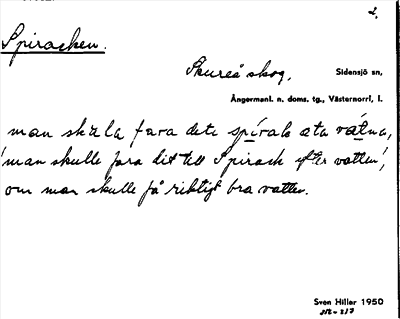 2.
Spiracken.
Skureå skog,
Sidensjö sn,
Ångermanl. n. doms. tg., Västernorrl. l.
man skula fara dit spírak äta vátna,
'man skulle fara dit till Spirack efter vatten',
om man skulle få riktigt bra vatten.
Sven Hiller 1950